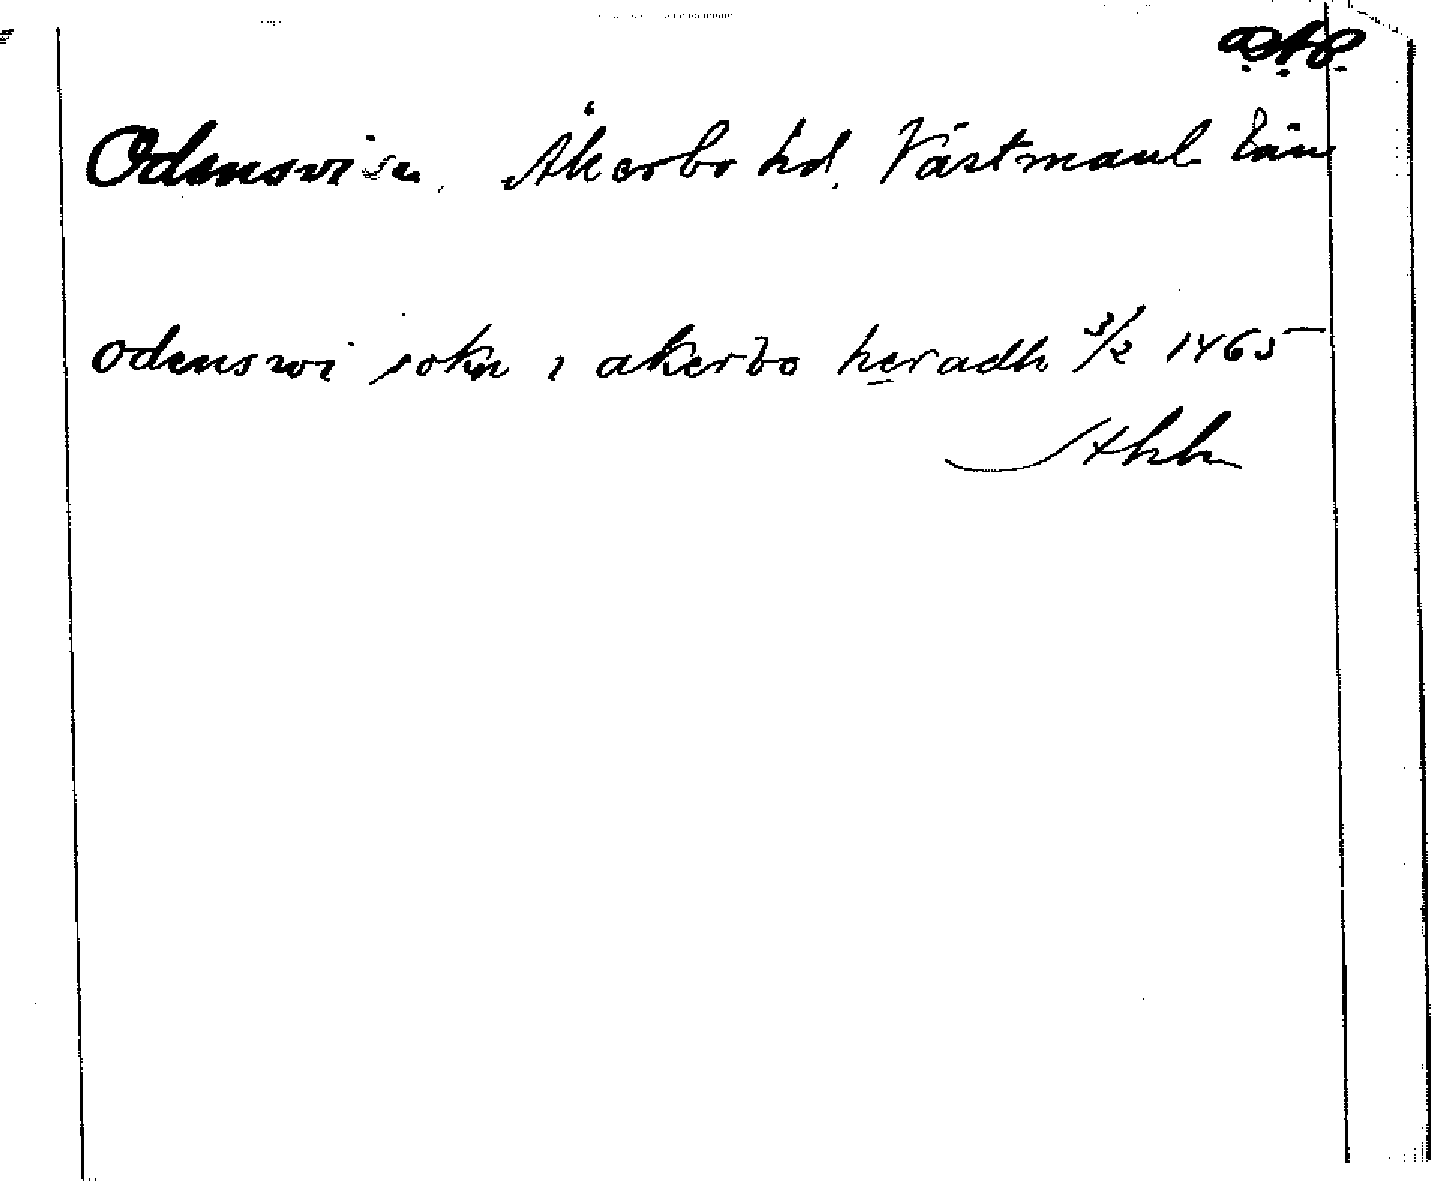 Odensvi sn. Åkerbo hd. Västmanl. län
odenswi sokn i akerbo heradh 3/2 1465